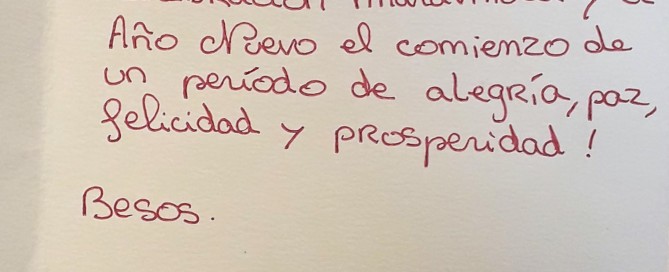 Año Nuevo el comienzo de
un período de alegría, paz,
felicidad y prosperidad!
Besos.